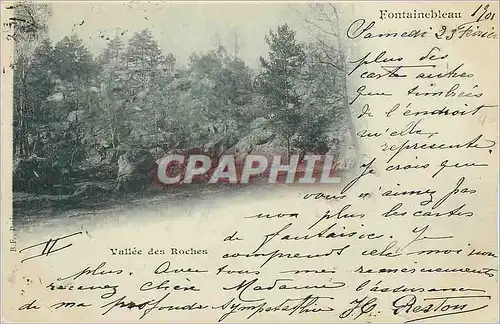 Fontainebleau
1901
Samedi 23 février
plus des
carte autres
que timbrées
de l'endroit
qu'elle
représente.
Je crois que
vous n'aimez pas
non plus les cartes
de fantaisie. Je
comprends cela moi non
plus. Avec tous mes remerciements
recevez chère Madame l'assurance
de ma profonde sympathie
CPAPHIL
II
Vallée des Roches